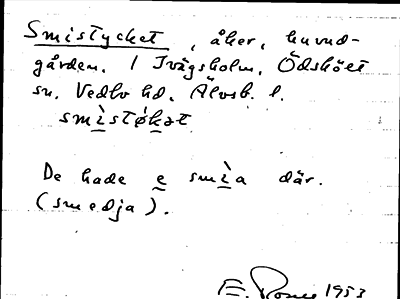 Smistycket, åker, huvud-
gården. / Ivägsholm, Ödskölt
sn. Vedbo hd. Älvsb. l.
smìstǿkət
De hade e smìa där.
(smedja).
E. 1953